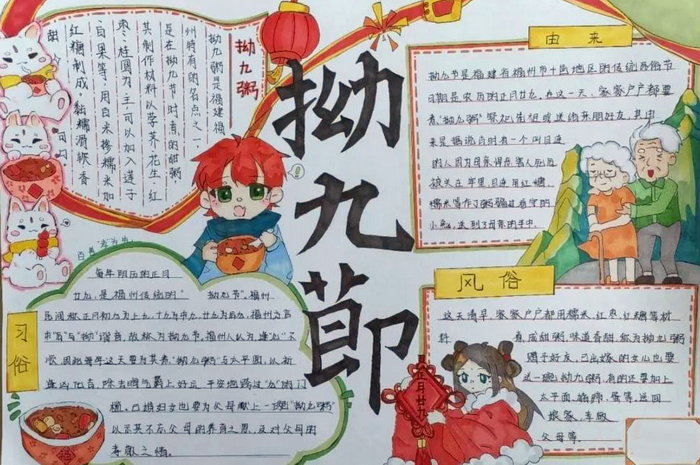 拗九節
拗九粥
拗九粥是福建福
州特有的名点之一
是在拗九节时煮的甜粥
其制作材料以荸荠、花生、红
枣、桂圆为主可以加入莲子
、白果等，用白米搀糯米加
红糖制成，黏糯滑
香
由来
拗九节是福建省福州市十邑地区的传统民俗节
日期是农历的正月廿九，在这一天，家家户户都要
煮“拗九粥”祭祀先祖或送
亲朋好友，其由
来是据说古时有一个叫目连
的人因为母亲得
用红糖、
糯米等作
送到了母亲的手中
习俗
每年阴历的正月
廿九，是福州传统的“拗九节”，福州
民间称正月初九为上九，十九为中九，廿九为后九，福州方言
中
与“拗”谐音，故称为拗九节，福州人认为逢“九”
因此每年这天要去煮“拗九粥”与太平面，以祈
逢凶化吉，除去晦气霸上好运，平安地跨过“九”的门
槛，已婚妇女也要为父母献上一碗“拗九粥”
以示其不忘父母的养育之恩，及对父母的
孝敬之情。
风俗
这天清早，家家户户都用糯米，红枣，红糖等材
料
煮成甜粥，味道香甜，称为拗九粥
赠予好友，已出嫁的女儿也要
送一碗拗九粥，有的还要加上
太平面、
蛋等，送回
娘家，孝敬
父母等。
正月廿九